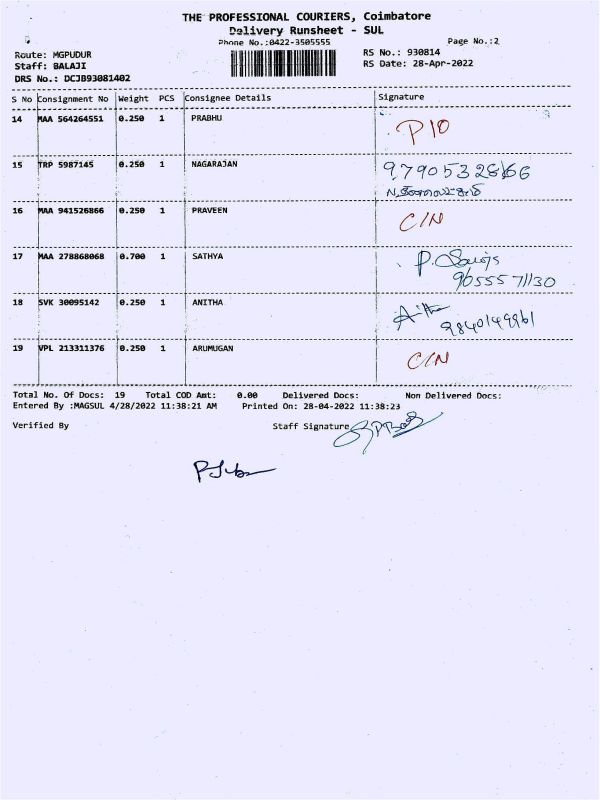 THE PROFESSIONAL COURIERS, Coimbatore
Delivery Runsheet - SUL
Phone No.:0422-3505555
Page No.:2
Route: MGPUDUR
RS No.: 930814
Staff: BALAJI
RS Date: 28-Apr-2022
DRS No.: DCJB93081402
S No Consignment No Weight PCS Consignee Details Signature
14 MAA 564264551 0.250 1 PRABHU P10
15 TRP 5987145 0.250 1 NAGARAJAN 9790532866
16 MAA 941526866 0.250 1 PRAVEEN C/N
17 MAA 278868068 0.700 1 SATHYA P.
9655571130
18 SVK 30095142 0.250 1 ANITHA
9840149961
19 VPL 213311376 0.250 1 ARUMUGAN C/N
Total No. Of Docs: 19 Total COD Amt: 0.00 Delivered Docs: Non Delivered Docs:
Entered By :MAGSUL 4/28/2022 11:38:21 AM Printed On: 28-04-2022 11:38:23
Verified By Staff Signature